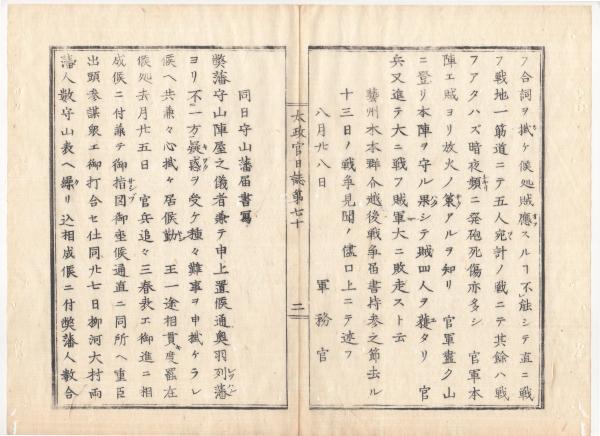 フ合詞ヲ掛ケ候処賊應スルヿ不能シテ直ニ戦
フ戦地一筋道ニテ五人宛計ノ戦ニテ其餘ハ戦
フアタハズ暗夜頻ニ発砲死傷亦多シ 官軍本
陣エ賊ヨリ放火ノ策アルヲ知リ 官軍盡ク山
ニ登リ本陣ヲ守ル果シテ賊四人ヲ獲タリ 官
兵又進テ大ニ戦フ賊軍大ニ敗走スト云
藝州木本群介越後戦争届書持参之節去ル
十三日ノ戦争見聞ノ儘口上ニテ述フ
八月廿八日 軍務官
太政官日誌第七十 二
同日守山藩届書寫
獘藩守山陣屋之儀者兼テ申上置候通奥羽列藩
ヨリ不一方疑惑ヲ受ケ種々難事ヲ申掛ケラレ
候ヘ共兼々心掛々居候勤 王一途相貫キ度罷在
候処去月廿五日 官兵追々三春表エ御進ニ相
成候ニ付兼テ御指図御座候通直ニ同所ヘ重臣
出頭参謀衆エ御打合セ仕同廿七日柳河大村両
藩人数守山表ヘ繰リ込相成候ニ付獘藩人数合